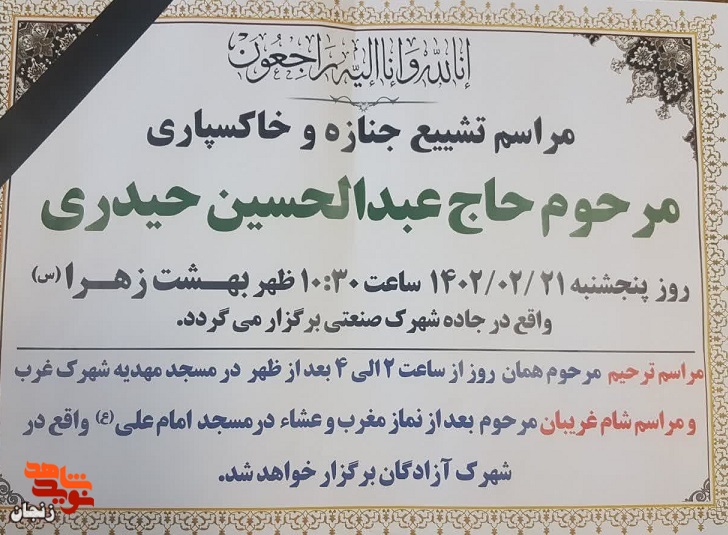 انا لله و انا الیه راجعون
مراسم تشییع جنازه و خاکسپاری
مرحوم حاج عبدالحسین حیدری
روز پنجشنبه ۱۴۰۲/۰۲/۲۱ ساعت ۱۰:۳۰ ظهر بهشت زهرا (س)
واقع در جاده شهرک صنعتی برگزار می گردد.
مراسم ترحیم مرحوم همان روز از ساعت ۲ الی ۴ بعد از ظهر در مسجد مهدیه شهرک غرب
و مراسم شام غریبان مرحوم بعد از نماز مغرب و عشاء در مسجد امام علی (ع) واقع در
شهرک آزادگان برگزار خواهد شد.
نوید شاهد
زنجان